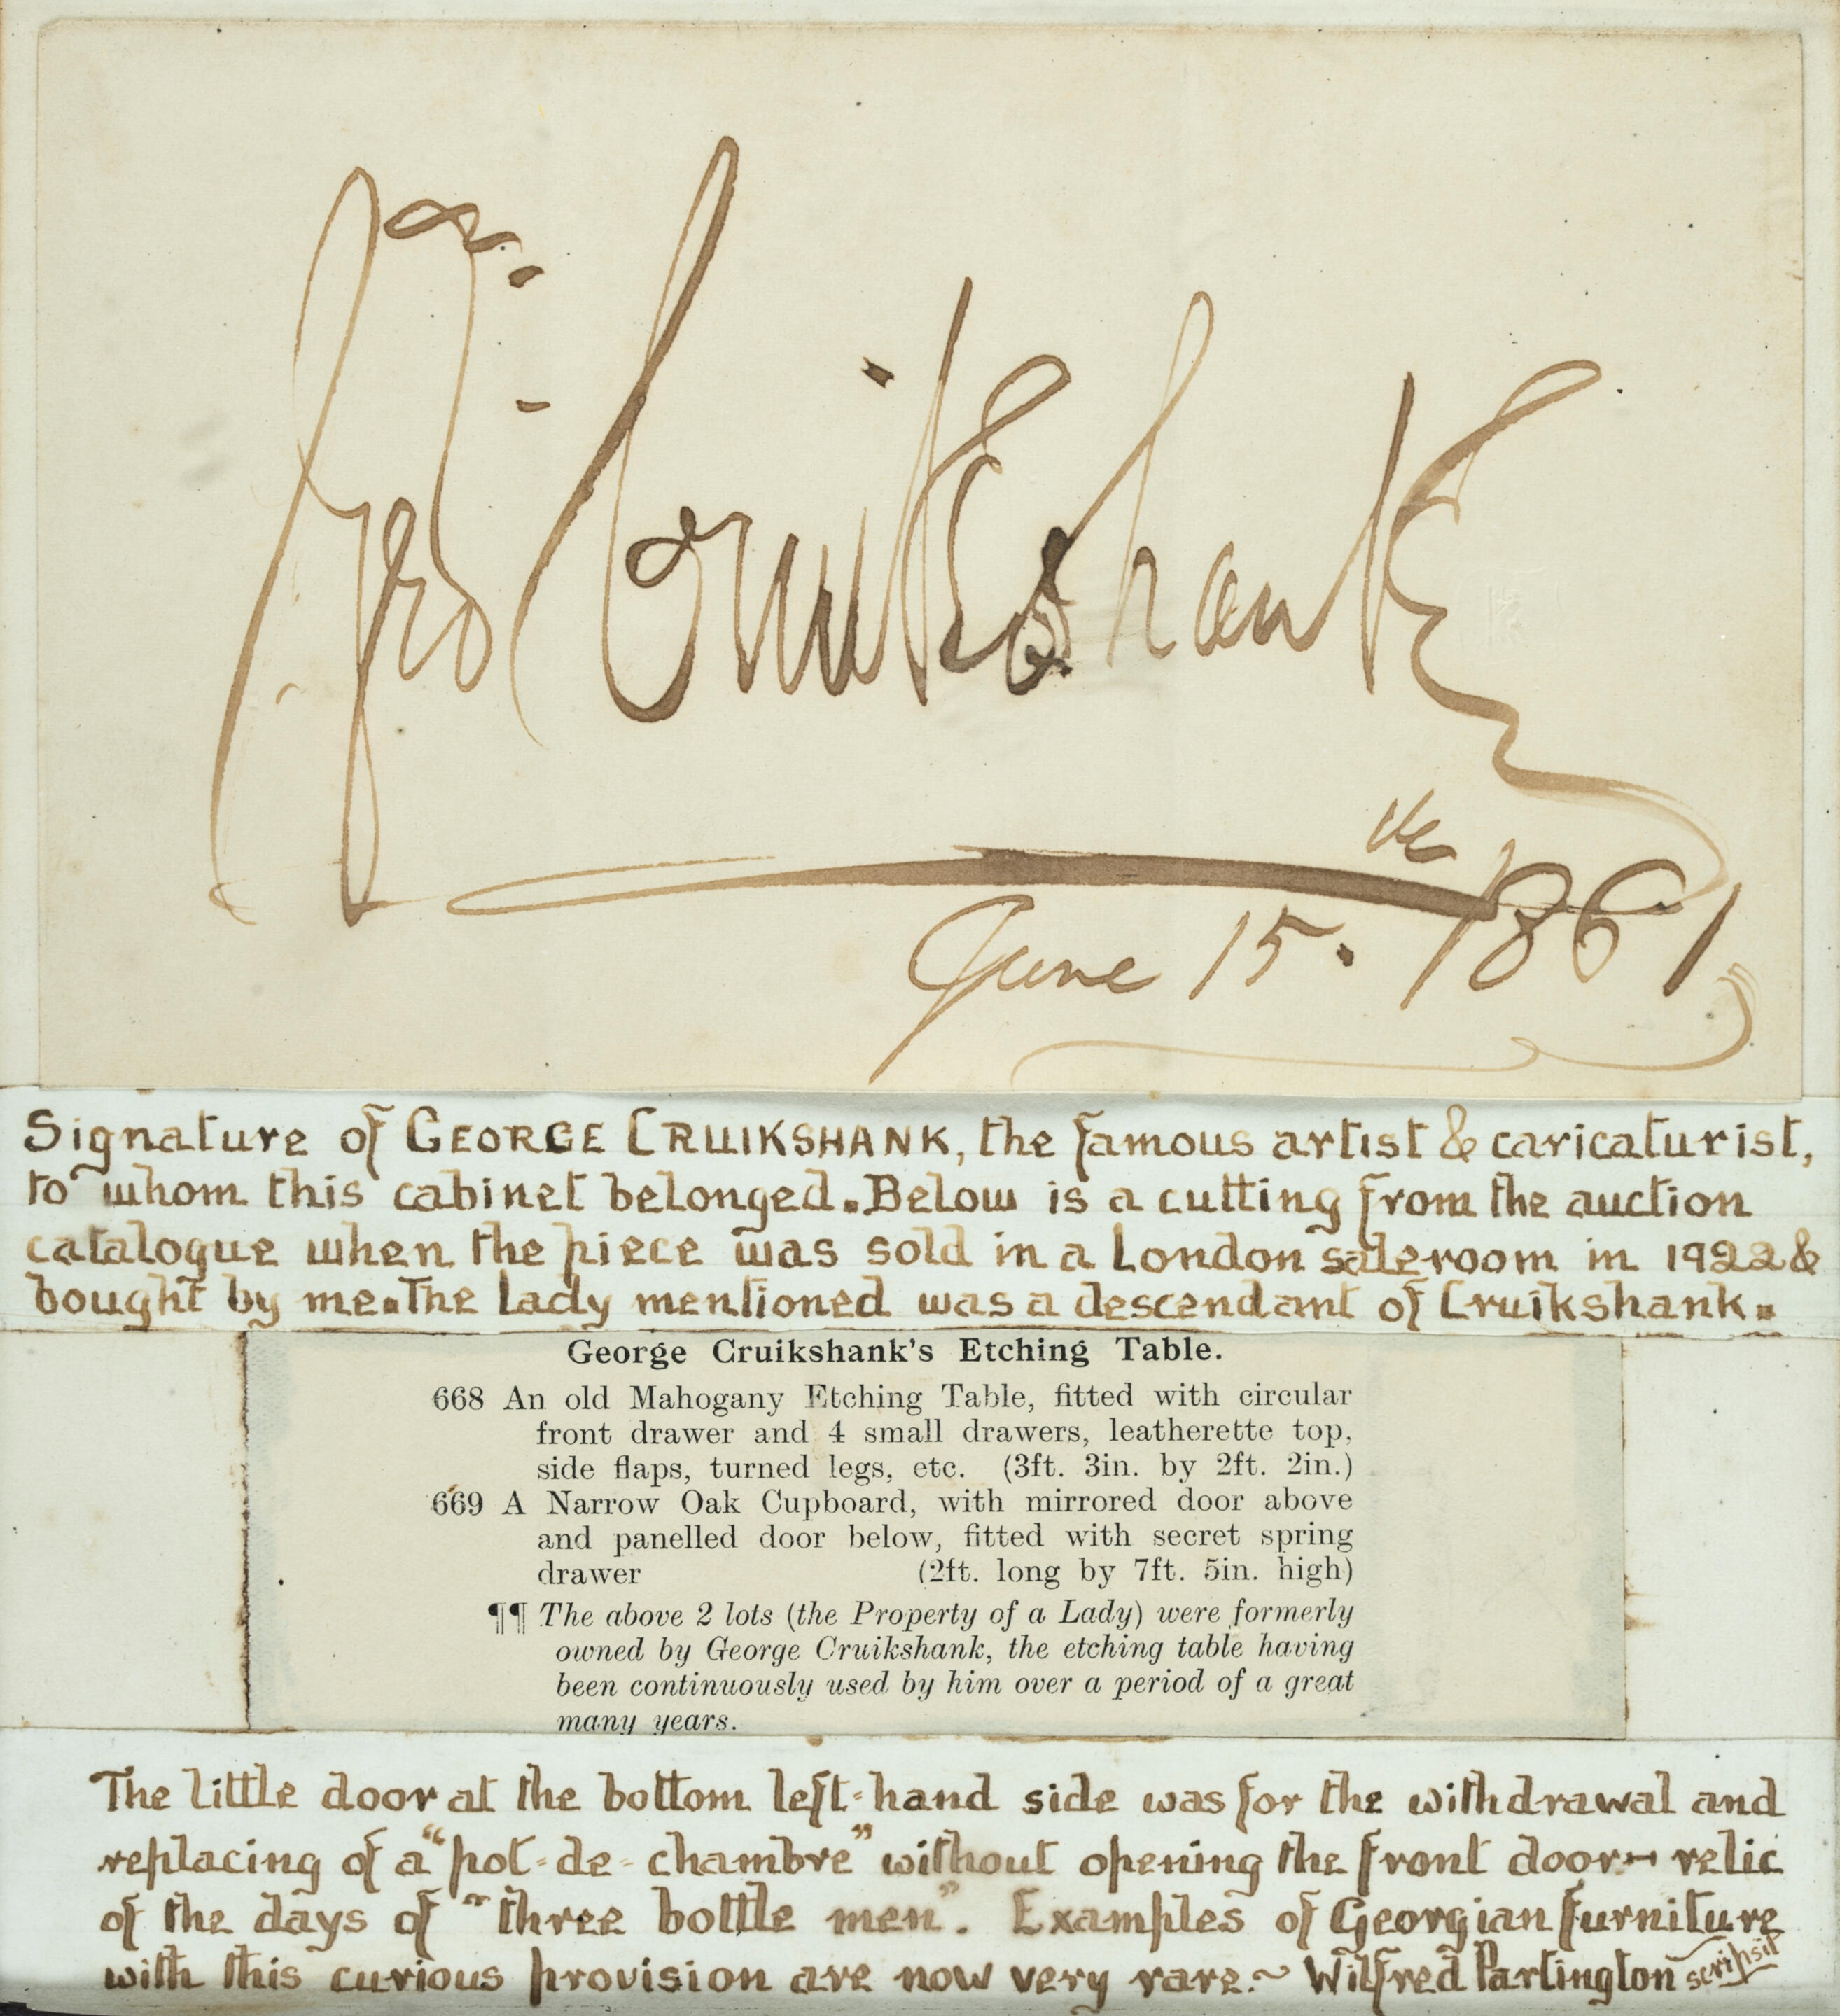 Geo. Cruikshank
June 15.th 1861
Signature of GEORGE CRUIKSHANK, the famous artist & caricaturist,
to whom this cabinet belonged. Below is a cutting from the auction
catalogue when the piece was sold in a London saleroom in 1922 &
bought by me. The Lady mentioned was a descendant of Cruikshank.
George Cruikshank's Etching Table.
668 An old Mahogany Etching Table, fitted with circular
front drawer and 4 small drawers, leatherette top,
side flaps, turned legs, etc. (3ft. 3in. by 2ft. 2in.)
669 A Narrow Oak Cupboard, with mirrored door above
and panelled door below, fitted with secret spring
drawer (2ft. long by 7ft. 5in. high)
¶¶ The above 2 lots (the Property of a Lady) were formerly
owned by George Cruikshank, the etching table having
been continuously used by him over a period of a great
many years.
The little door at the bottom left-hand side was for the withdrawal and
replacing of a "pot-de-chambre" without opening the front door — relic
of the days of "three bottle men". Examples of Georgian furniture
with this curious provision are now very rare. ~ Wilfred Partington scripsit